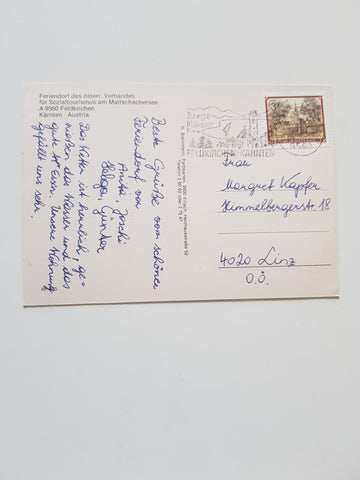 Feriendorf des österr. Verbandes
für Sozialtourismus am Maltschachersee
A-9560 Feldkirchen
Kärnten - Austria
Beste Grüße vom schönen
Feriendorf von
Anita, Joschi
Helga, Günter
Das Wetter ist herrlich, ge-
nießen das Wasser und das
gute Essen. Unsere Wohnung
gefällt uns sehr.
FELDKIRCHEN-KÄRNTEN
Frau
Margret Kapfer
Himmelbergerstr. 18
4020 Linz
O.Ö.